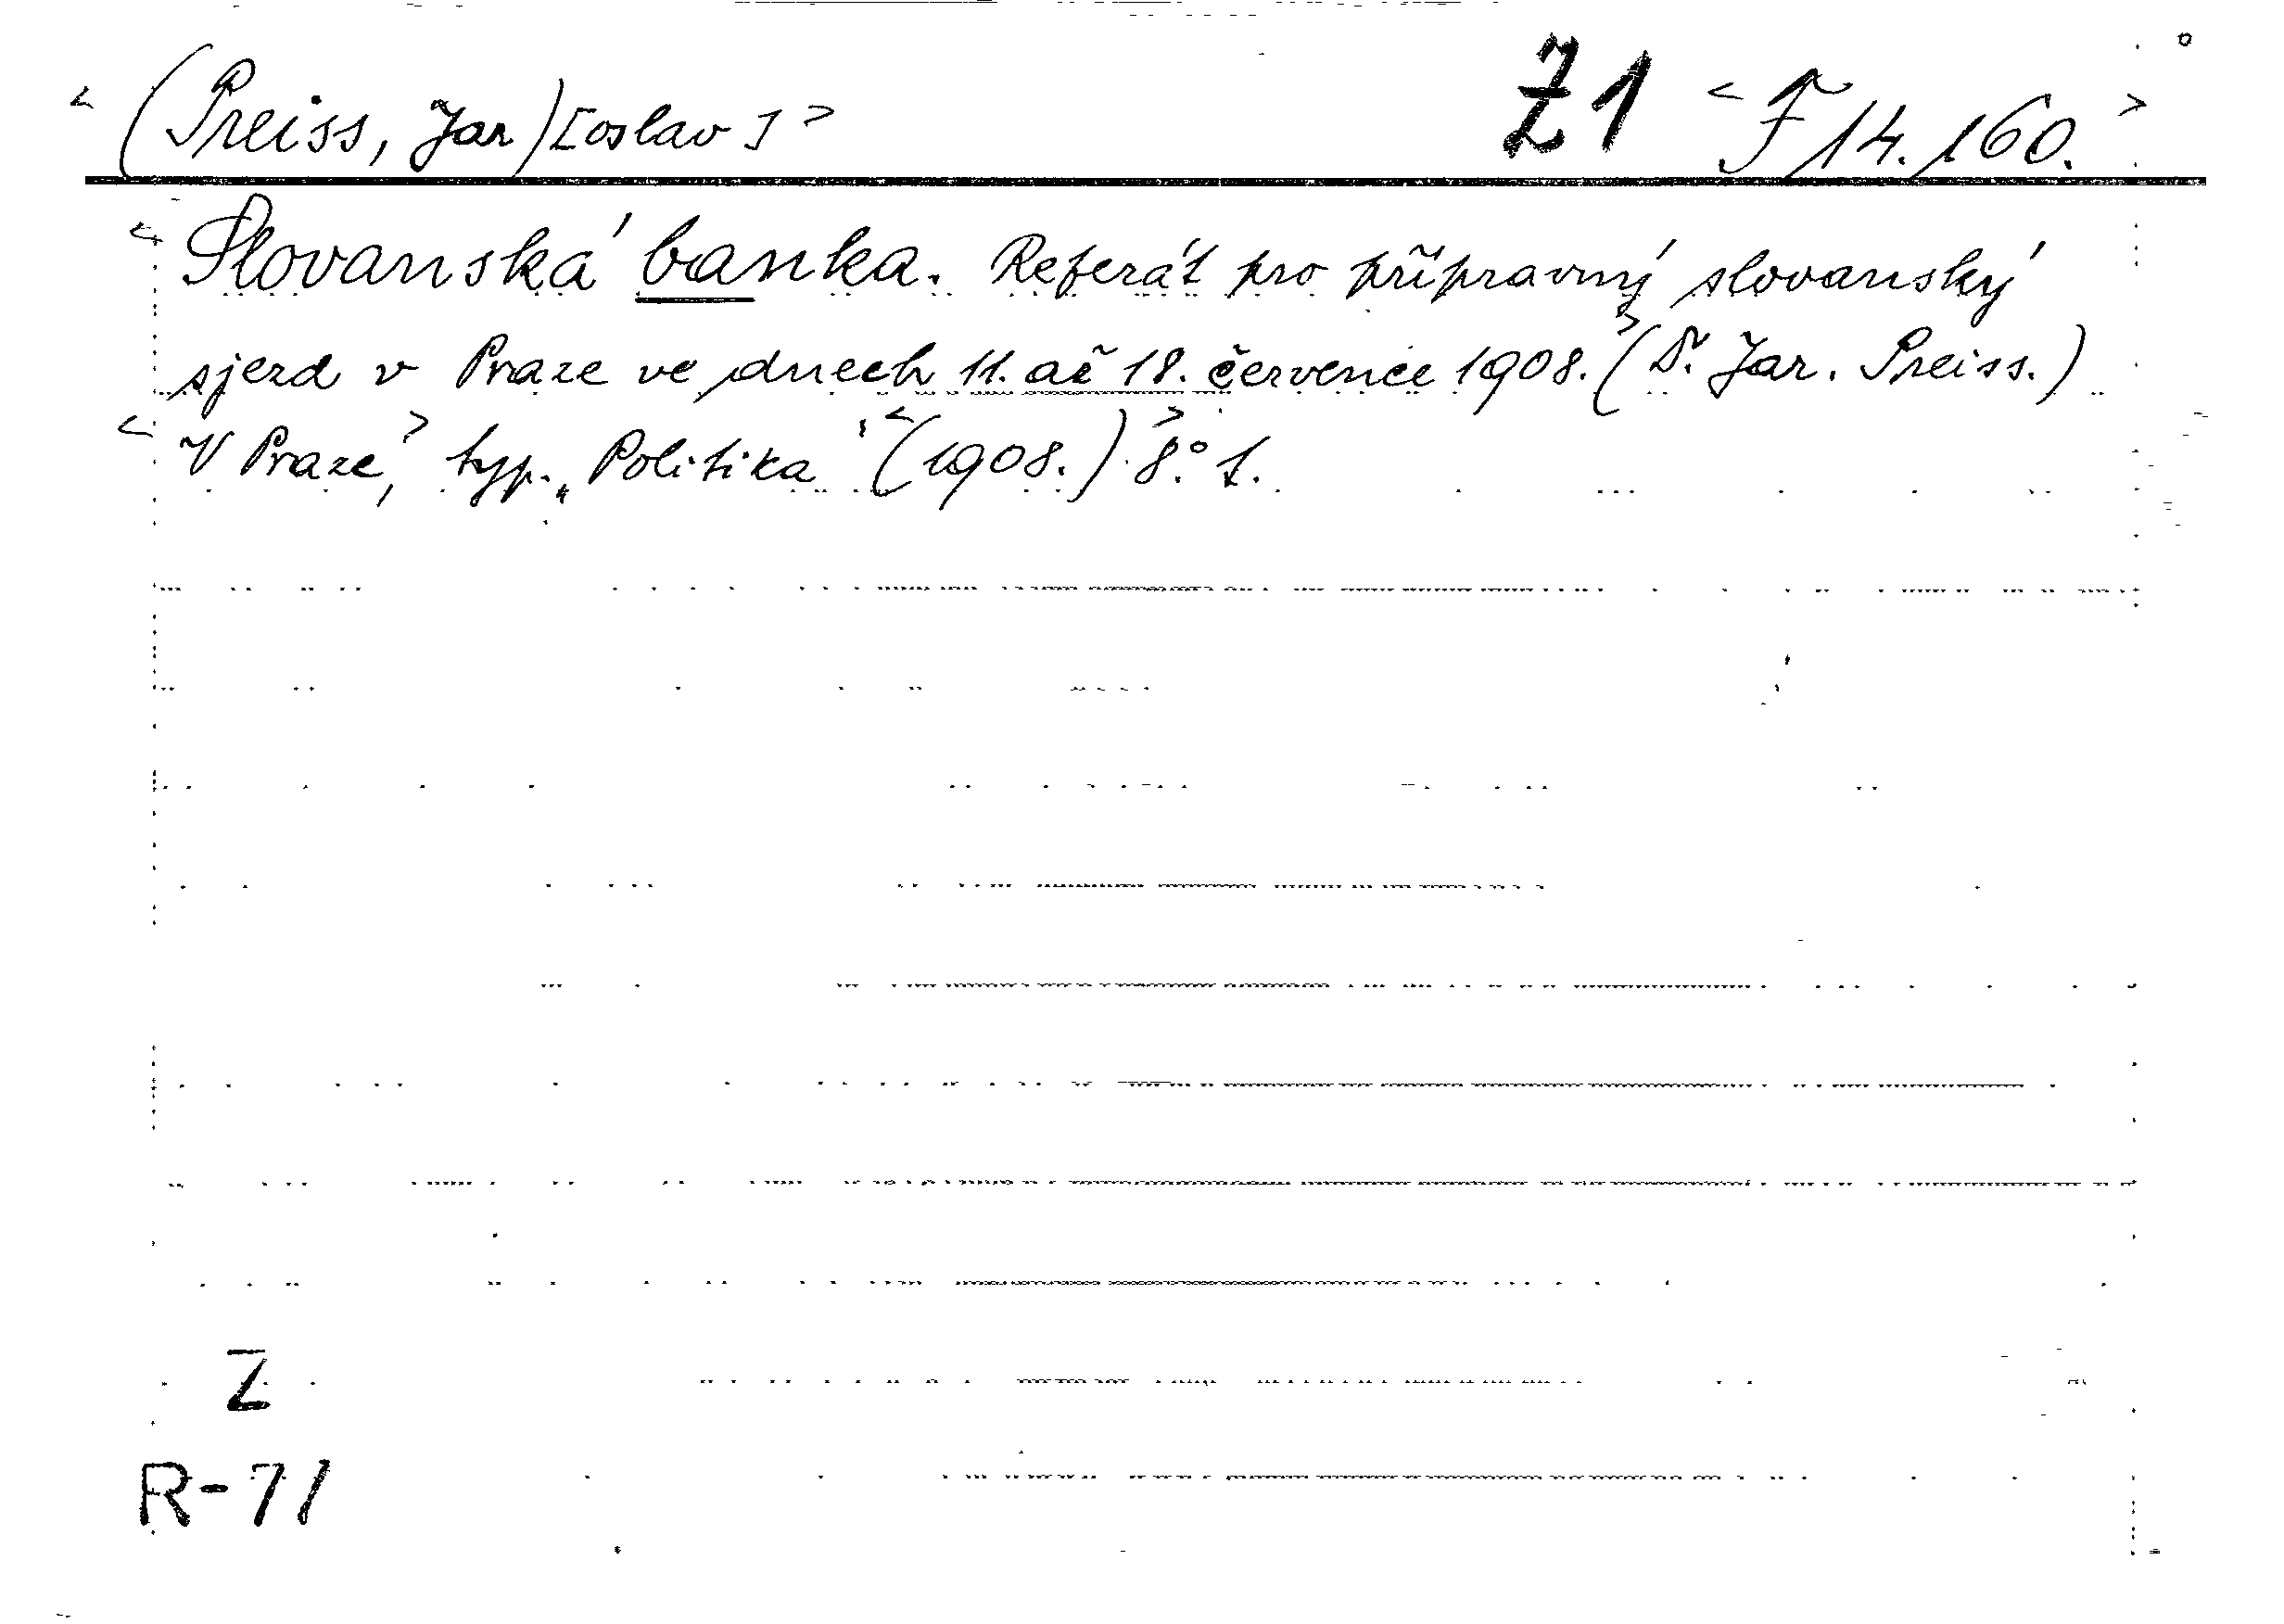 < (Preiss, Jar)[oslav] > Z1 < F 14.160. >
< Slovanská banka. Referát pro přípravný slovanský
sjezd v Praze ve dnech 11. až 18. července 1908. > (Dr. Jar. Preiss.)
< V Praze, > typ. „Politika“ < (1908.) > 8.° 1.
Z
R-71